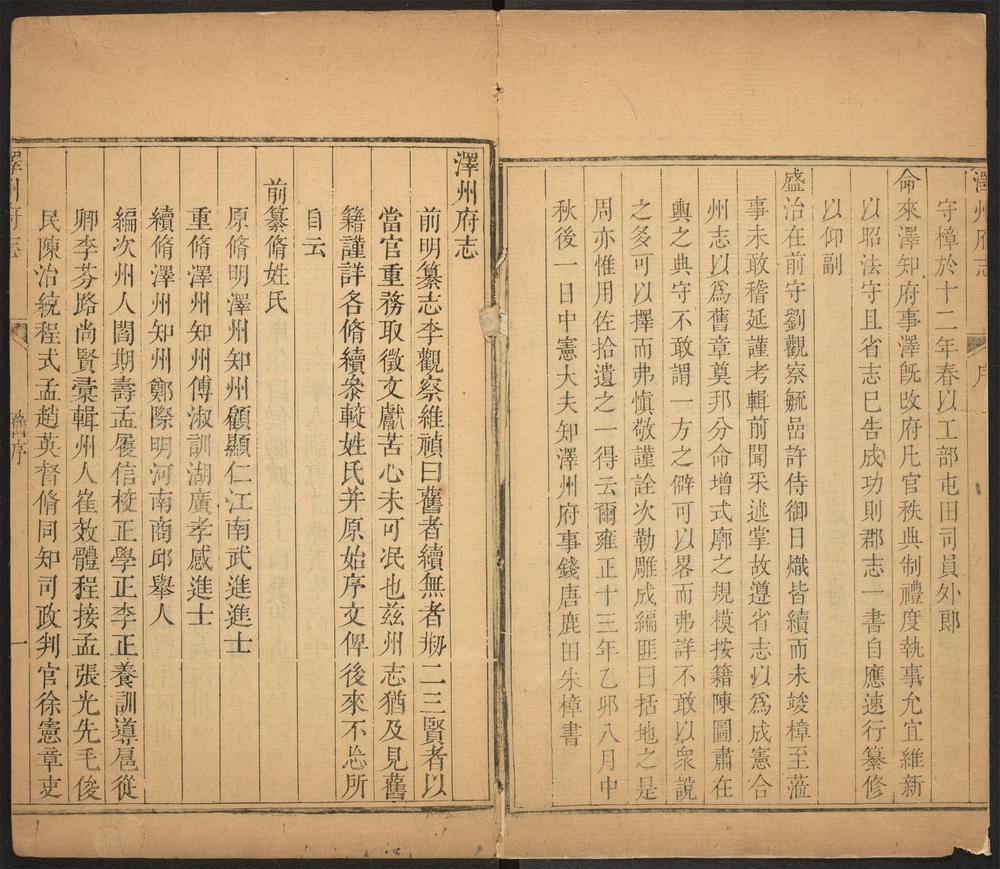 澤州府志
序
守樟於十二年春以工部屯田司員外郎
命來澤知府事澤旣改府凡官秩典制禮度執事允宜維新
以昭法守且省志已告成功則郡志一書自應速行纂修
以仰副
盛治在前守劉觀察毓嵒許侍御日熾皆續而未竣樟至蒞
事未敢稽延謹考輯前聞采述掌故遵省志以爲成憲合
州志以爲舊章奠邦分命增式廓之規模按籍陳圖肅在
輿之典守不敢謂一方之僻可以畧而弗詳不敢以衆說
之多可以擇而弗愼敬謹詮次勒雕成編匪曰括地之是
周亦惟用佐拾遺之一得云爾雍正十三年乙卯八月中
秋後一日中憲大夫知澤州府事錢唐鹿田朱樟書
澤州府志
前明纂志李觀察維禎曰舊者續無者刱二三賢者以
當官重務取徵文獻苦心未可泯也茲州志猶及見舊
籍謹詳各脩續叅較姓氏并原始序文俾後來不忘所
自云
前纂脩姓氏
原脩明澤州知州顧顯仁江南武進進士
重脩澤州知州傅淑訓湖廣孝感進士
續脩澤州知州鄭際明河南商邱舉人
編次州人閻期壽孟履信校正學正李正養訓導扈從
卿李芬路尚賢彚輯州人崔效體程接孟張光先毛俊
民陳治統程式孟趙英督脩同知司政判官徐憲章吏
澤州府志
舊序
一